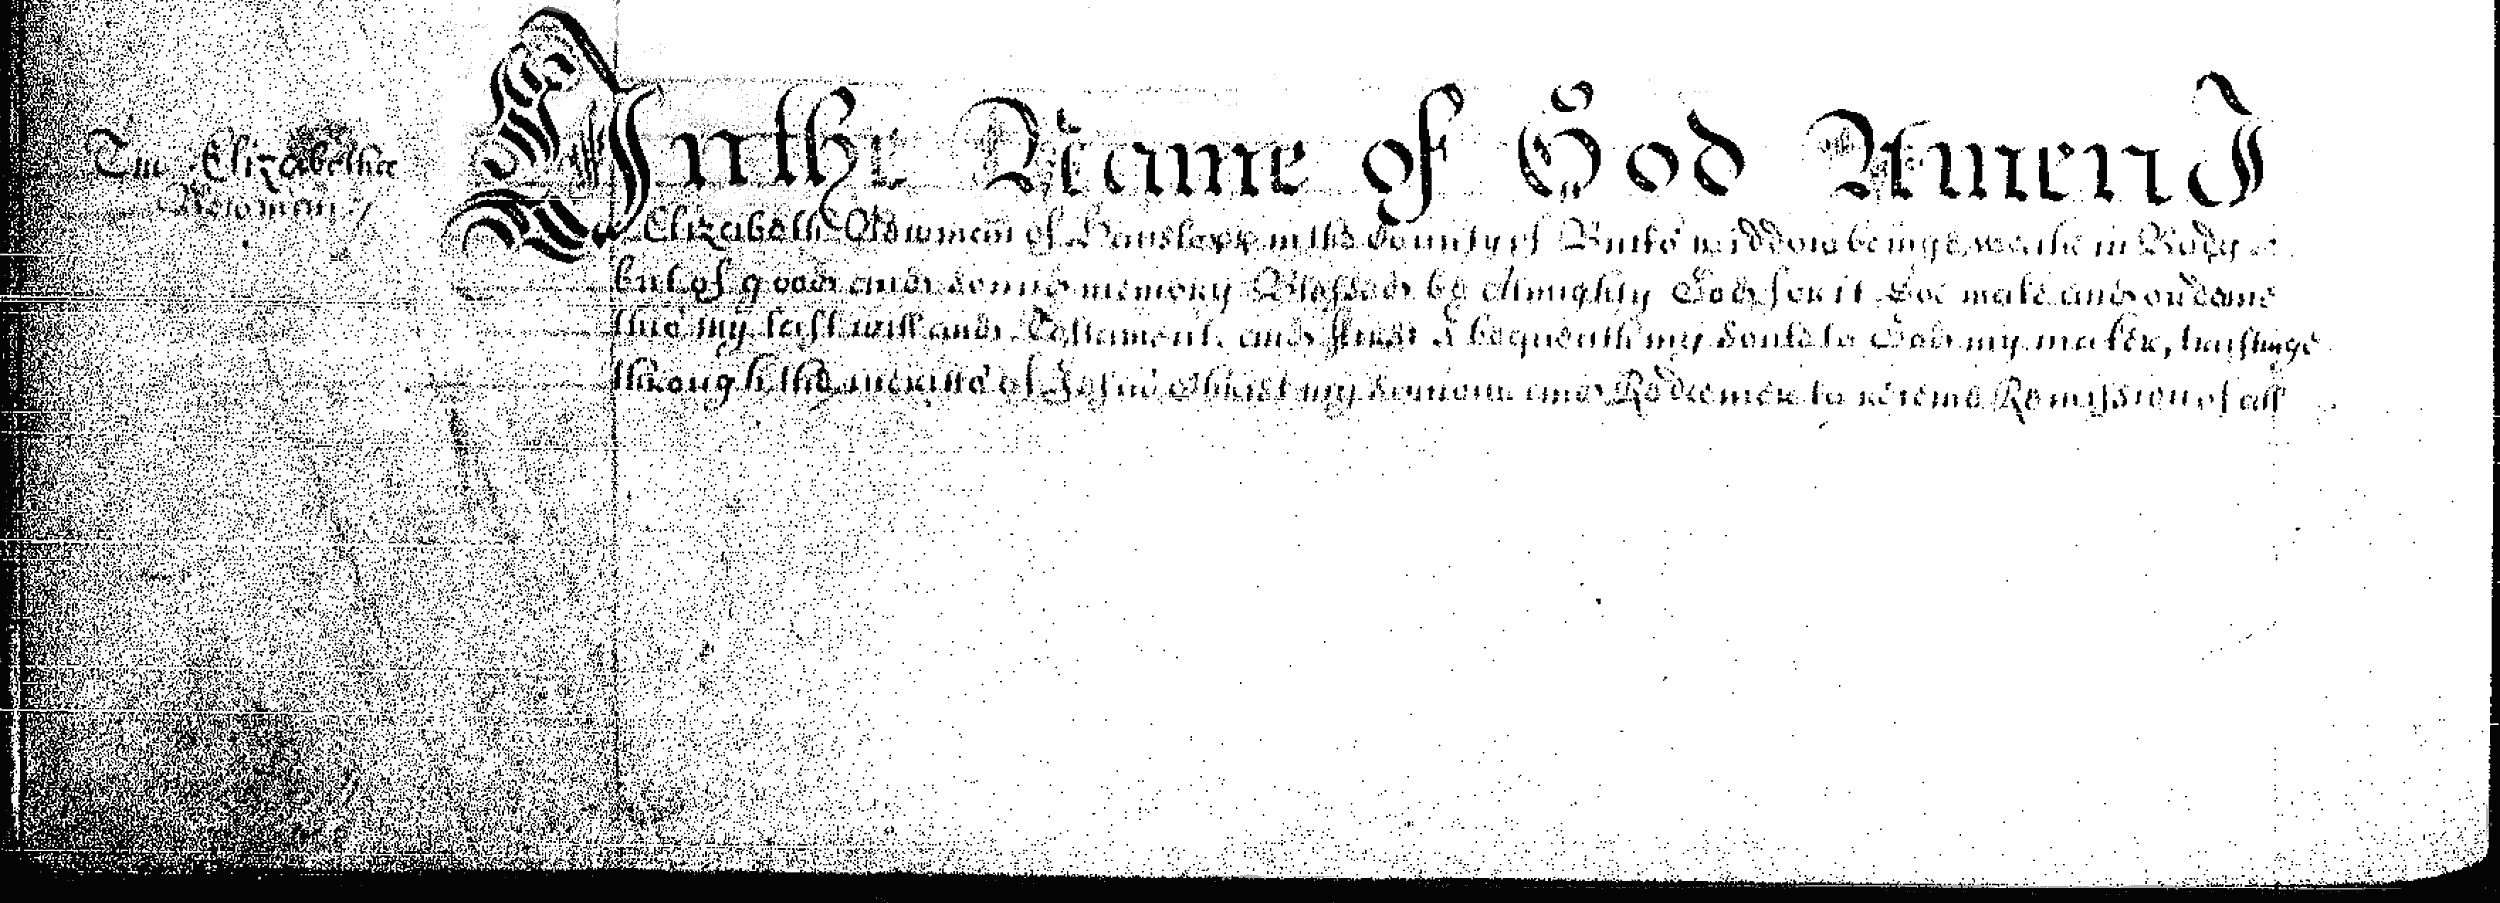 Tm Elizabethæ
In the Name of God Amen I
Elizabeth Oldwmen of Hanslopp in the County of Bucks widdow beinge weake in Body
but of good and sound memory Blessed be Almighty God for it Doe make and ordaine
this my last will and Testament. and first I bequeath my Soule to God my maker, trustinge
through the merritts of Jesus Christ my Saviour and Redeemer to receive Remission of all